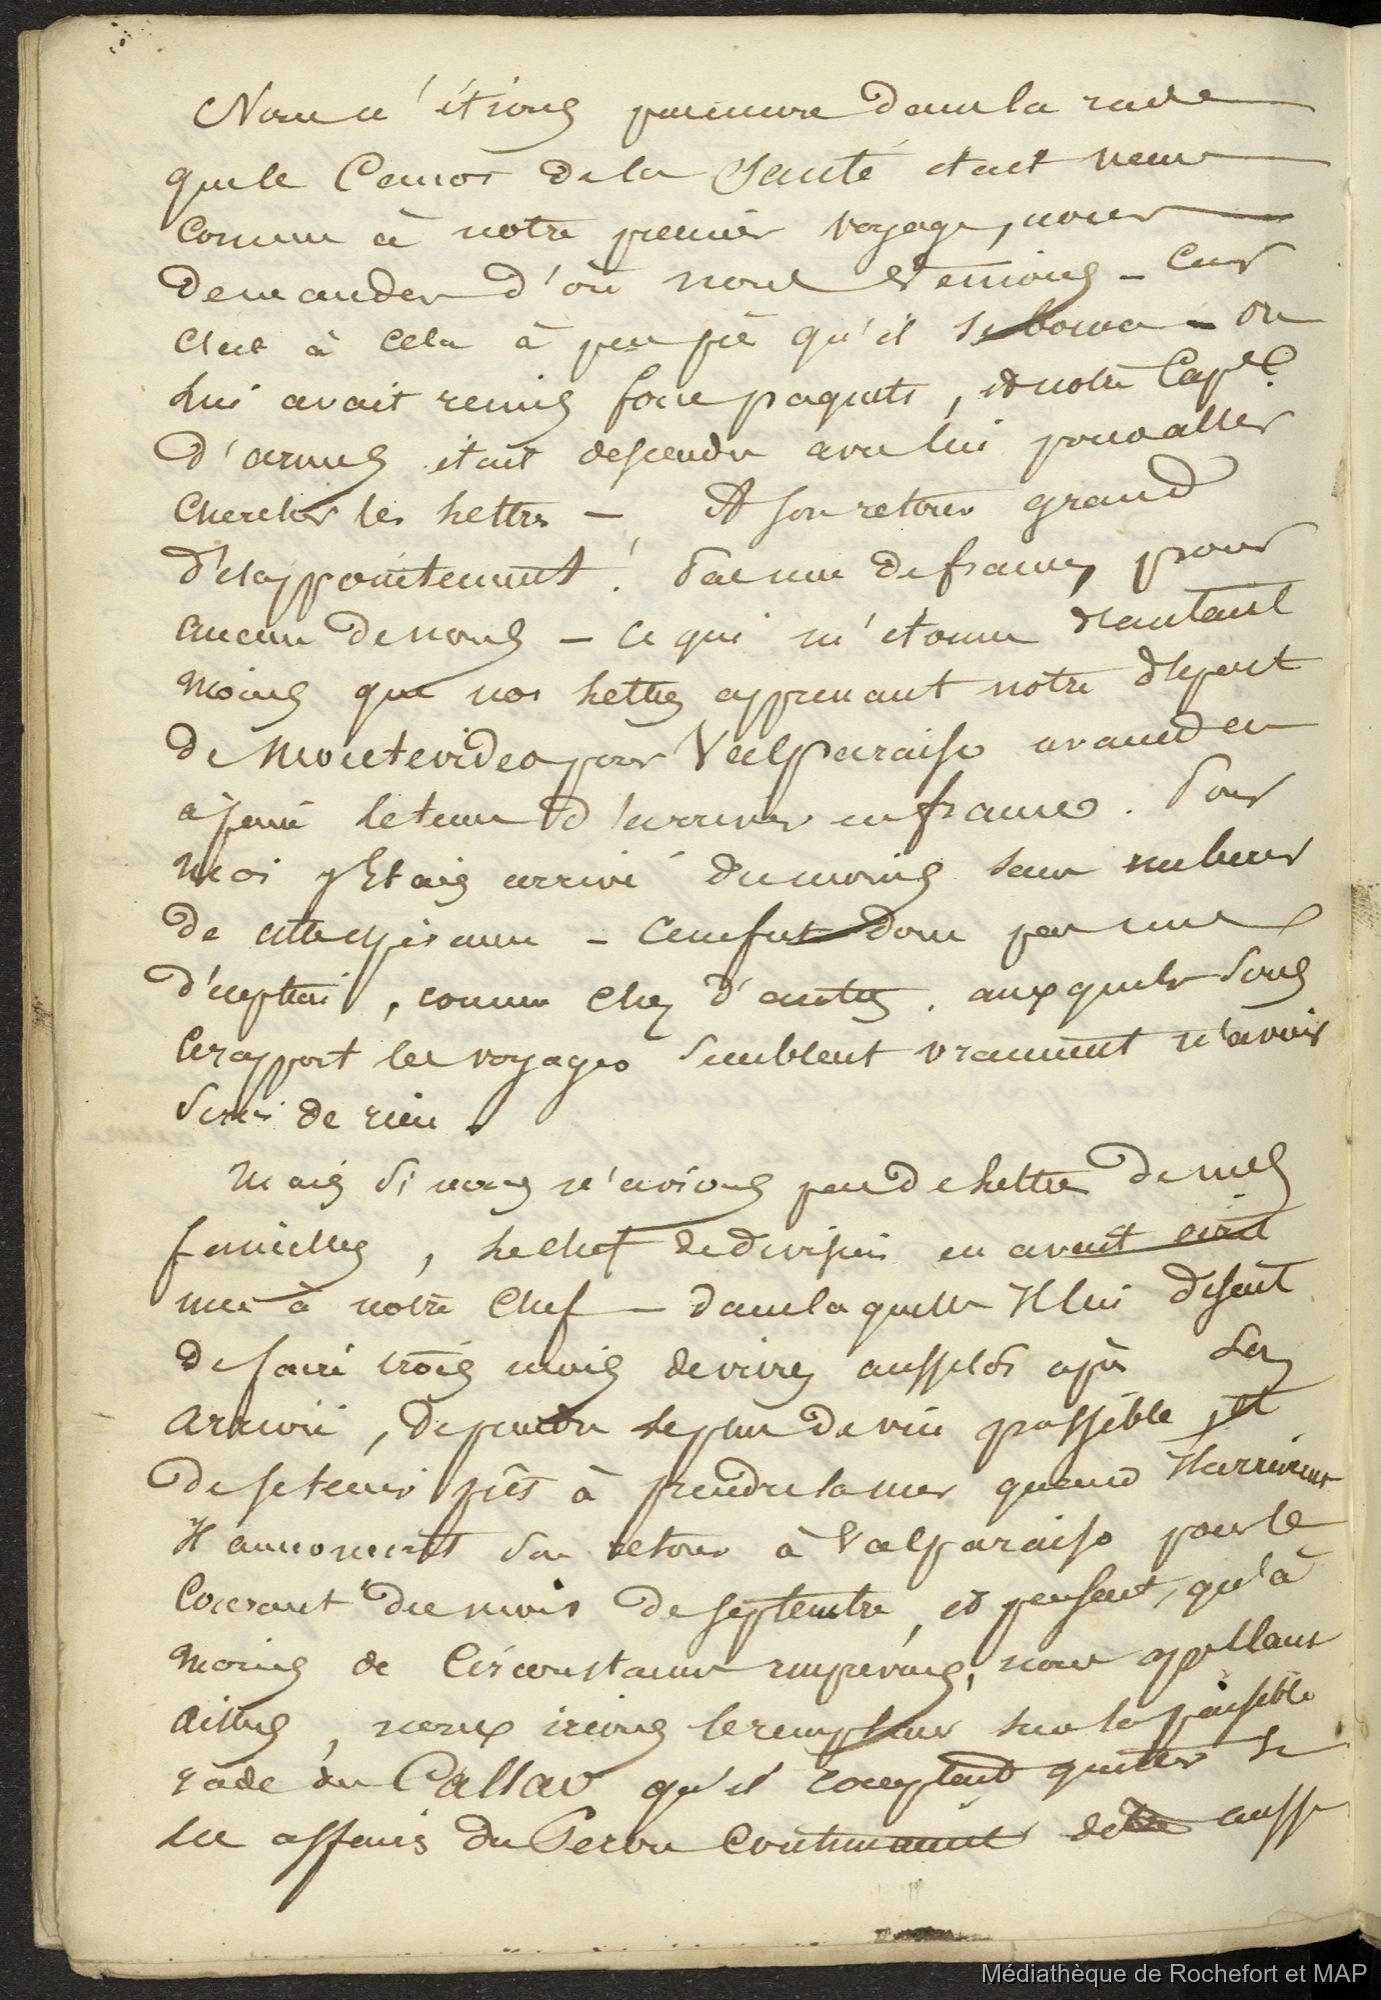 Nous n'étions pas encore dans la rade
que le Canot de la Santé était venu
comme à notre premier voyage, nous
demander d'où nous venions - Car
c'est à cela à peu près qu'il se borna - On
lui avait remis force paquets, et notre Cape.
d'armes était descendu avec lui pour aller
chercher les lettres - A son retour grand
désappointement! Pas une de france, pour
aucun de nous - Ce qui m'étonna d'autant
moins que nos lettres apprenant notre départ
de Montevideo pour Valparaiso avaient eu
à peine le tems d'arriver en france. Pour
moi j'étais arrivé du moins sans me bercer
de cette espérance - Ce ne fut donc pas une
déception, comme chez d'autres, auxquels sous
ce rapport les voyages semblent vraiment n'avoir
servi de rien.
Mais si nous n'avions pas de lettres de nos
familles, le chef de division en avait écrit
une à notre Chef - dans laquelle Il lui disait
de faire trois mois de vivres aussitôt après son
arrivée, de prendre le plus de vin possible, et
de se tenir prêt à prendre la mer quand Il arriverait
Il annonçait son retour à Valparaiso pour le
Courant du mois de septembre, et pensait, qu'à
moins de Circonstances imprévues, nous appellant
ailleurs, nous irions le remplacer sur la paisible
rade du Callao qu'il comptait quitter si
les affaires du Perou Continuaient d'être aussi
Médiathèque de Rochefort et MAP